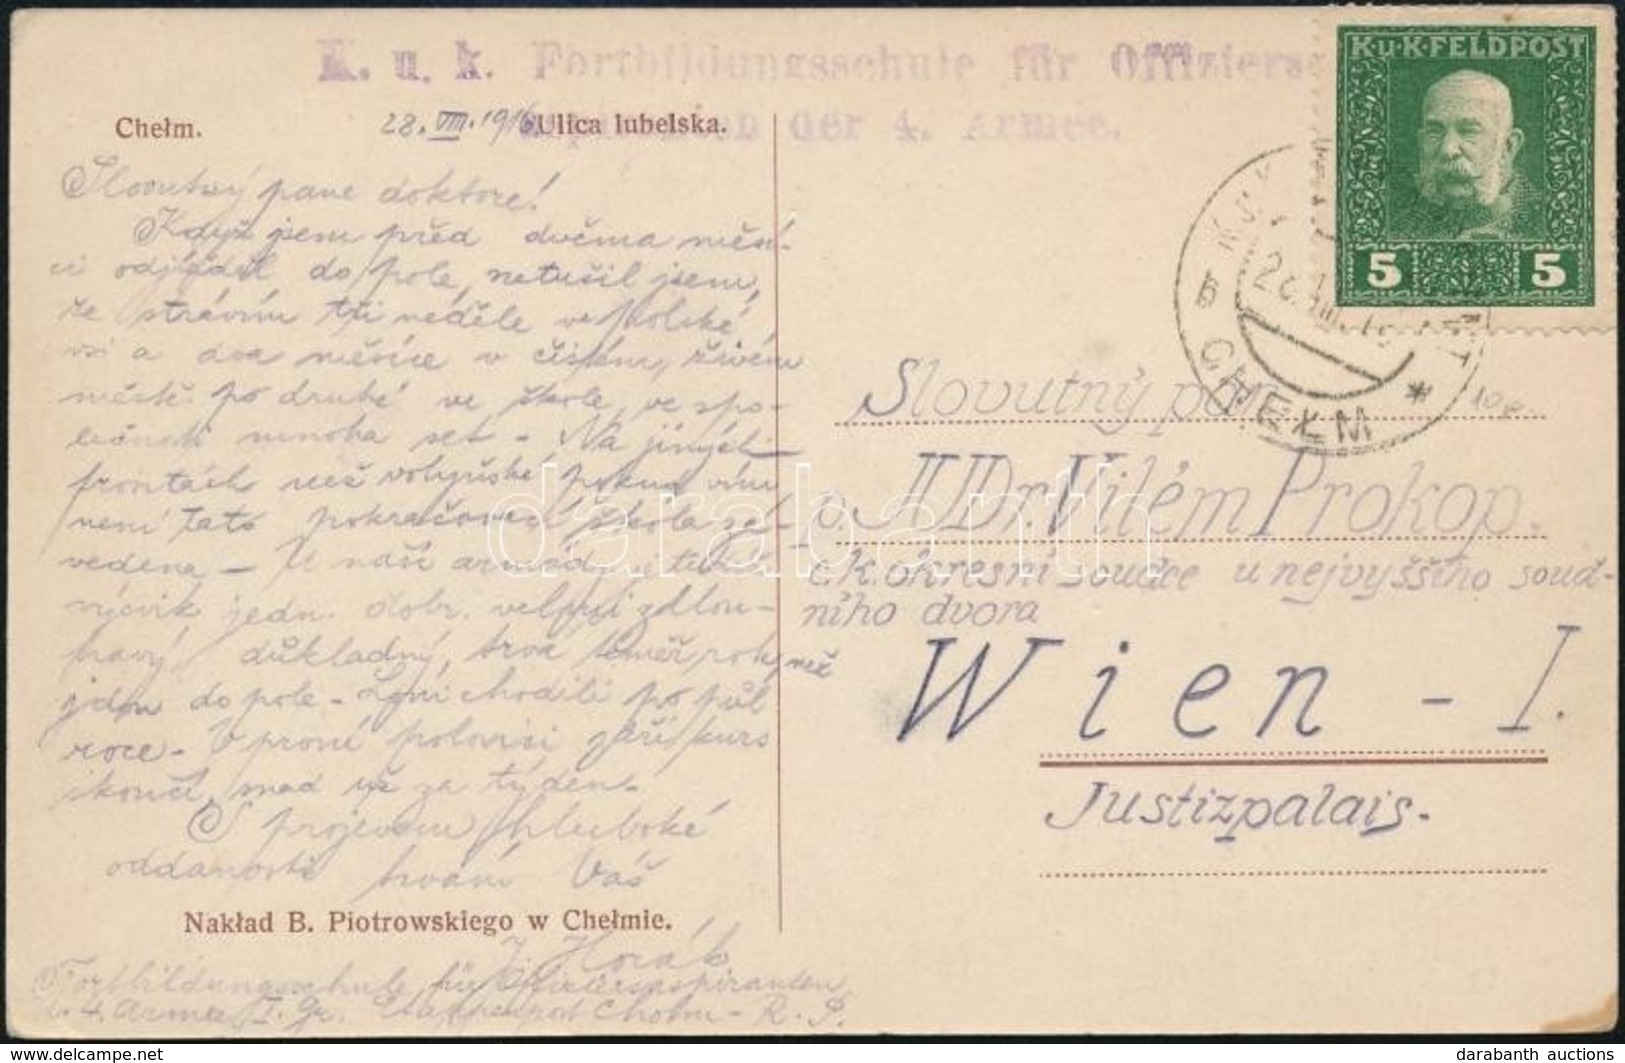 K. u. k. Fortbildungsschule für Offiziers
der 4. Armee.
K.u.K. FELDPOST
5 5
Chełm. 28. VIII. 1916 Ulica lubelska.
b CHEŁM *
Slovutný pane doktore!
Když jsem před dvěma měsí-
ci odjížděl do pole, netušil jsem,
že strávím tři neděle v polské
vsi a dva měsíce v čistém, živém
městě po druhé ve škole, ve spo-
lečnosti mnoha set - Na jiných
frontách než volyňské pokud vím
není tato pokračovací škola za-
vedena - U naší armády je také
výcvik jedn. dobr. velmi zdlou-
havý, důkladný, trvá téměř rok, než
jdou do pole - Loni chodili po půl
roce - V první polovici září kurs
skončí, snad už za týden.
S projevem hluboké
oddanosti trvám Váš
J. Horák
Nakład B. Piotrowskiego w Chełmie.
Fortbildungsschule für Offiziersaspiranten
d. 4. Armee I. Gr. Etappenpost Cholm - R. P.
Slovutný pan
p. JUDr. Vilém Prokop,
c.k. okresní soudce u nejvyššího soud-
ního dvora
Wien - I.
Justizpalais.
darabanth
darabanth auctions